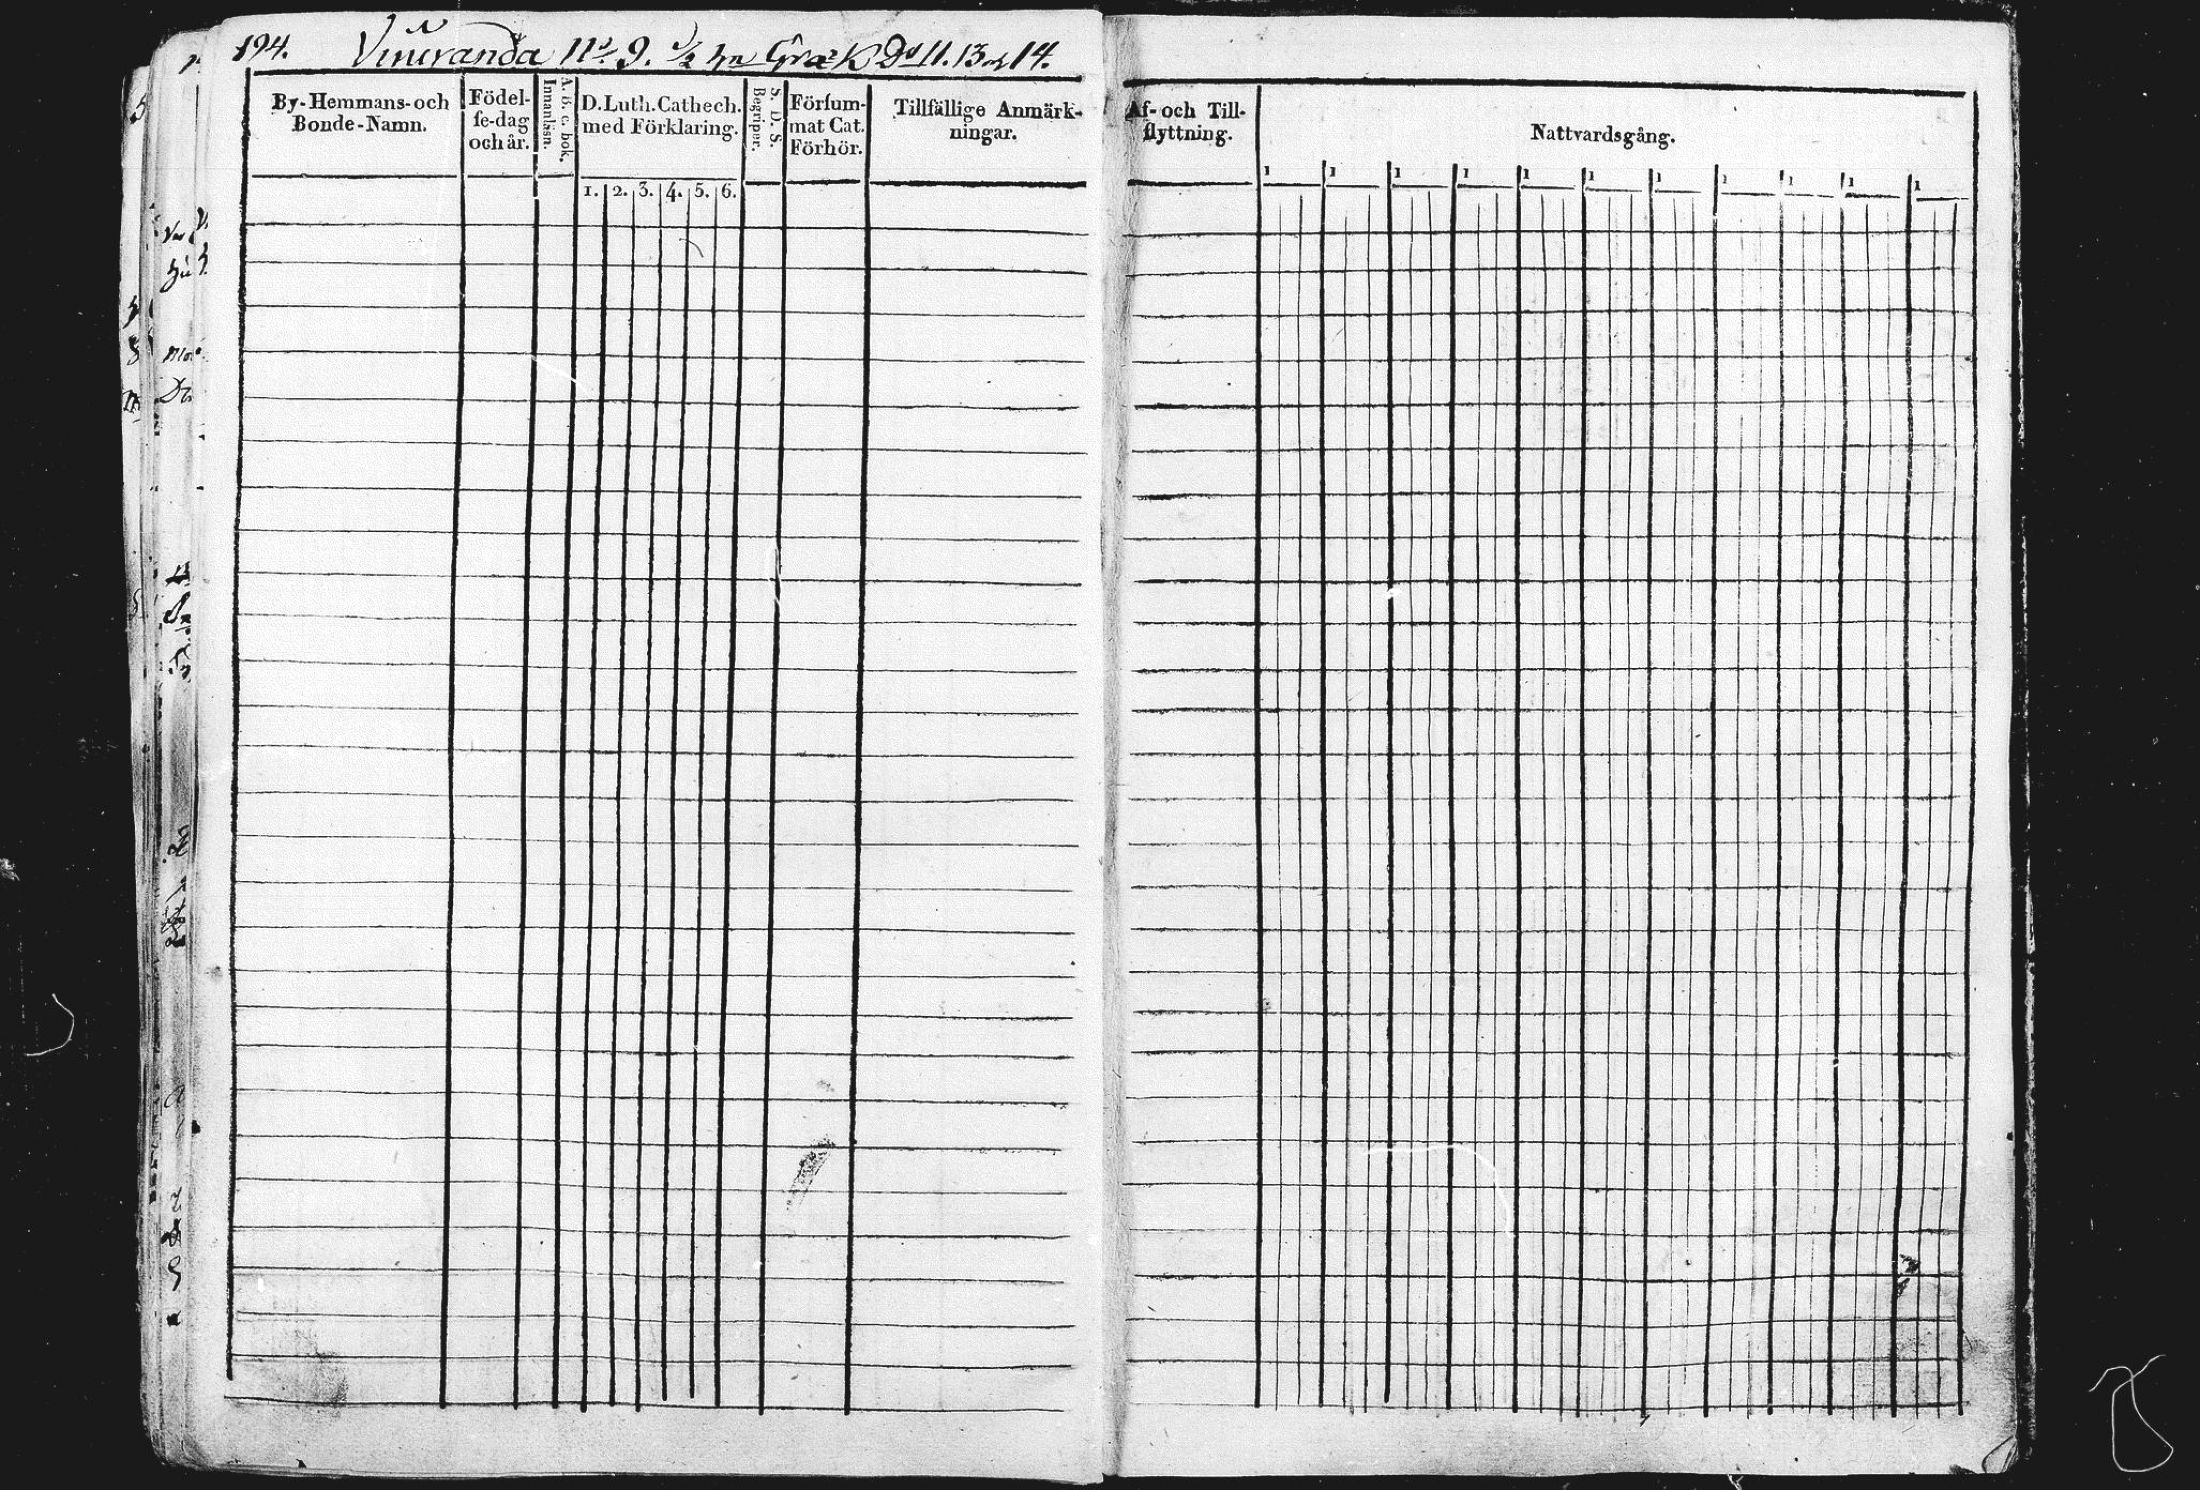 194. N:o 9. 1/2 11. 13 14.
By-Hemmans-och
Bonde-Namn.
Födel-
se-dag
och år.
A. B. c. bok.
Innanläsn.
D. Luth. Cathech.
med Förklaring.
1. 2. 3. 4. 5. 6.
S. D. S.
Begriper.
Försum-
mat Cat.
Förhör.
Tillfällige Anmärk-
ningar.
Af- och Till-
flyttning.
Nattvardsgång.
1 1 1 1 1 1 1 1 1 1 1